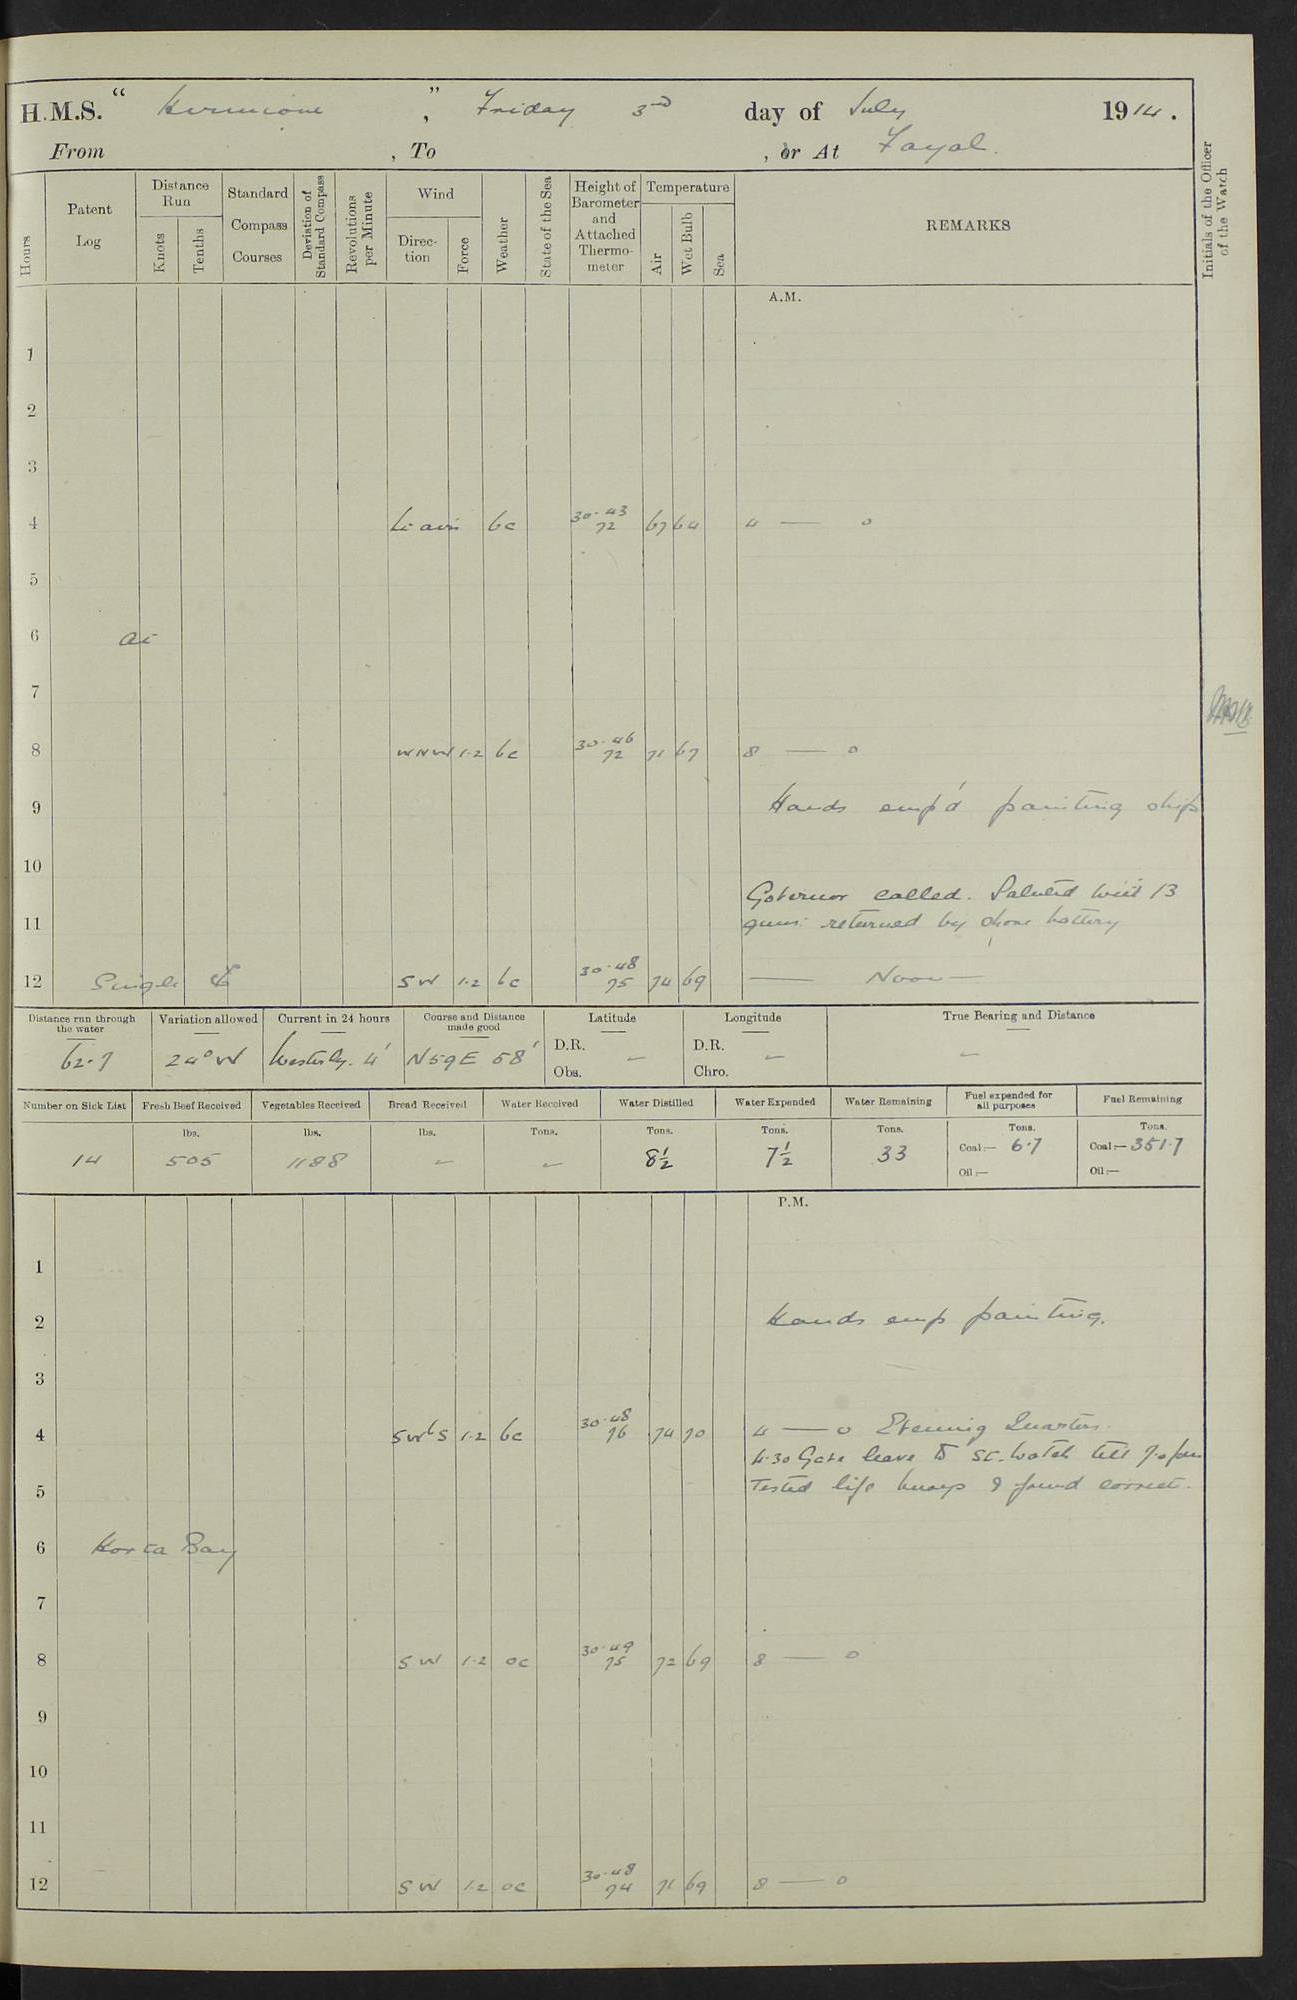 H.M.S. " Hermione " , Friday 3rd day of July 1914.
From , To , or At Fayal.
Hours
Patent Log
Distance Run
Knots
Tenths
Standard Compass Courses
Deviation of Standard Compass
Revolutions per Minute
Wind
Direction
Force
Weather
State of the Sea
Height of Barometer and Attached Thermometer
Temperature
Air
Wet Bulb
Sea
REMARKS
Initials of the Officer of the Watch
A.M.
1
2
3
4 Lt airs bc 30.43 72 67 64 4 — 0
5
6 At
7
8 WNW 1.2 bc 30.46 72 71 67 8 — 0
9 Hands emp'd painting ship
10
Governor called. Saluted with 13
11 guns: returned by shore battery
12 Single SW 1.2 bc 30.48 75 74 69 — Noon —
Distance run through the water
Variation allowed
Current in 24 hours
Course and Distance made good
Latitude
Longitude
True Bearing and Distance
62.7 24° W Westerly. 4' N59E 58' D.R. — D.R. — —
Obs. Chro.
Number on Sick List
Fresh Beef Received
Vegetables Received
Bread Received
Water Received
Water Distilled
Water Expended
Water Remaining
Fuel expended for all purposes
Fuel Remaining
lbs. lbs. lbs. Tons. Tons. Tons. Tons. Tons. Tons.
14 505 1188 — — 8½ 7½ 33 Coal:— 6.7 Coal:— 351.7
Oil:— Oil:—
P.M.
1
2 Hands emp painting.
3
4 SWbS 1.2 bc 30.48 76 74 70 4 — 0 Evening Quarters.
4.30 Gave leave to watch till 7.0 pm
5 Tested life buoys & found correct.
6 Horta Bay
7
8 SW 1.2 oc 30.49 75 72 69 8 — 0
9
10
11
12 SW 1.2 oc 30.48 74 71 69 8 — 0